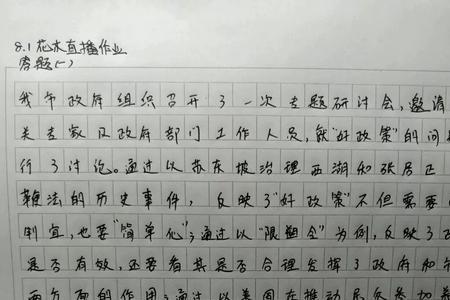 8.1花木直播作业
答题(一)
我市政府组织召开了一次专题研讨会,邀请
关专家及政府部门工作人员,就"好政策"的问
行了讨论。通过以苏东坡治理西湖和张居正
鞭法的历史事件,反映了"好政策"不但需要
制宜,也要"简单化";通过以"限塑令"为例,反映了
是否有效,还要看其是否合理发挥了政府和
两方面的作用;通过以美国在推动居民参加养